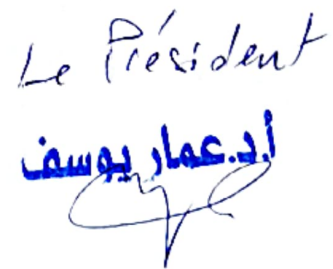 Le Président
أ.د.عمار يوسف